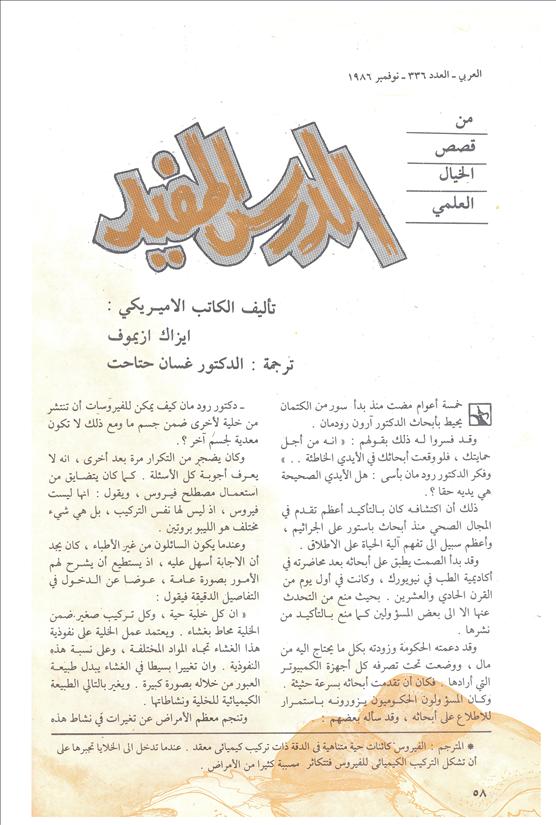 العربي - العدد ٣٣٦ - نوفمبر ١٩٨٦
من
قصص
الخيال
العلمي
الدرس المفيد
تأليف الكاتب الاميريكي :
ايزاك ازيموف
ترجمة : الدكتور غسان حتاحت
خمسة أعوام مضت منذ بدأ سور من الكتمان
يحيط بأبحاث الدكتور آرون رودمان .
وقد فسروا له ذلك بقولهم : « انه من أجل
حمايتك ، فلو وقعت أبحاثك في الأيدي الخاطئة . . »
وفكر الدكتور رودمان بأسى : هل الأيدي الصحيحة
هي يديه حقا ؟ .
ذلك أن اكتشافه كان بالتأكيد أعظم تقدم في
المجال الصحي منذ أبحاث باستور على الجراثيم ،
وأعظم سبيل الى تفهم آلية الحياة على الاطلاق .
وقد بدأ الصمت يطبق على أبحاثه بعد محاضرته في
أكاديمية الطب في نيويورك ، وكانت في أول يوم من
القرن الحادي والعشرين . بحيث منع من التحدث
عنها الا الى بعض المسؤولين كما منع بالتأكيد من
نشرها .
وقد دعمته الحكومة وزودته بكل ما يحتاج اليه من
مال ، ووضعت تحت تصرفه كل أجهزة الكمبيوتر
التي أرادها . فكان أن تقدمت أبحاثه بسرعة حثيثة .
وكان المسؤولون الحكوميون يزورونه باستمرار
للاطلاع على أبحاثه ، وقد سأله بعضهم :
ـ دكتور رودمان كيف يمكن للفيروسات أن تنتشر
من خلية لأخرى ضمن جسم ما ومع ذلك لا تكون
معدية لجسم آخر ؟ .
وكان يضجر من التكرار مرة بعد أخرى ، انه لا
يعرف أجوبة كل الأسئلة . كما كان يتضايق من
استعمال مصطلح فيروس ، ويقول : انها ليست
فيروس ، اذ ليس لها نفس التركيب ، بل هي شيء
مختلف هو الليبو بروتين .
وعندما يكون السائلون من غير الأطباء ، كان يجد
أن الاجابة أسهل عليه ، اذ يستطيع أن يشرح لهم
الأمور بصورة عامة ، عوضا عن الدخول في
التفاصيل الدقيقة فيقول :
« ان كل خلية حية ، وكل تركيب صغير ضمن
الخلية محاط بغشاء . ويعتمد عمل الخلية على نفوذية
هذا الغشاء تجاه المواد المختلفة ، وعلى نسبة هذه
النفوذية . وان تغييرا بسيطا في الغشاء يبدل طبيعة
العبور من خلاله بصورة كبيرة . ويغير بالتالي الطبيعة
الكيميائية للخلية ونشاطاتها .
وتنجم معظم الأمراض عن تغيرات في نشاط هذه
* المترجم : الفيروس كائنات حية متناهية في الدقة ذات تركيب كيميائي معقد . عندما تدخل الى الخلايا تجبرها على
أن تشكل التركيب الكيميائي للفيروس فتتكاثر مسببة كثيرا من الأمراض .
٥٨